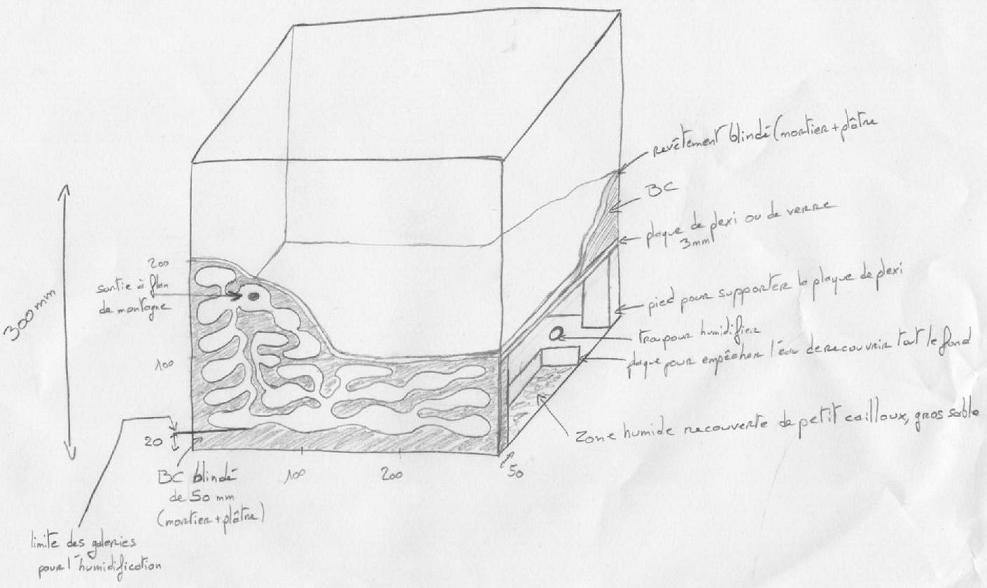 revêtement blindé (mortier + plâtre
BC
plaque de plexi ou de verre
3mm
pied pour supporter la plaque de plexi
trou pour humidifier
plaque pour empêcher l'eau de recouvrir tout le fond
Zone humide recouverte de petit cailloux, gros sable
300 mm
200
sortie à flan
de montagne
100
20
BC blindé
de 50 mm
(mortier + plâtre)
100
200
50
limite des galeries
pour l'humidification